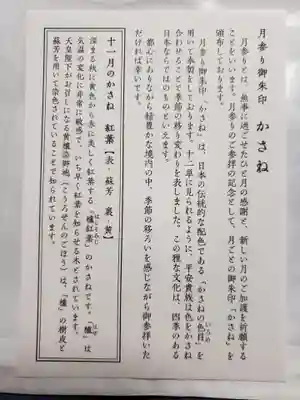 月参り御朱印 かさね
月参りとは、無事に過ごせたひと月の感謝と、新しい月のご加護を祈願する
ことをいいます。月参りのご参拝の記念として、月ごとの御朱印「かさね」を
頒布しております。
月参り御朱印「かさね」は、日本の伝統的な配色である「かさねの色目」を
用いて奉製をしております。十二単に見られるように、平安貴族は色をかさね
合わせることで季節の移り変わりを表しました。この雅な文化は、四季のある
日本ならではのものといえます。
都心にありながら緑豊かな境内の中、季節の移ろいを感じながら御参拝いた
だければ幸いです。
十一月のかさね 紅葉【表・蘇芳 裏・黄】
深まる秋に黄色から赤に美しく紅葉する「櫨紅葉」のかさねです。「櫨」は
気温の変化に非常に敏感で、いち早く紅葉を知らせる木とされています。
天皇陛下がお召しになる黄櫨染御袍（こうろぜんのごほう）は、「櫨」の樹皮と
蘇芳を用いて染色されていることで知られています。